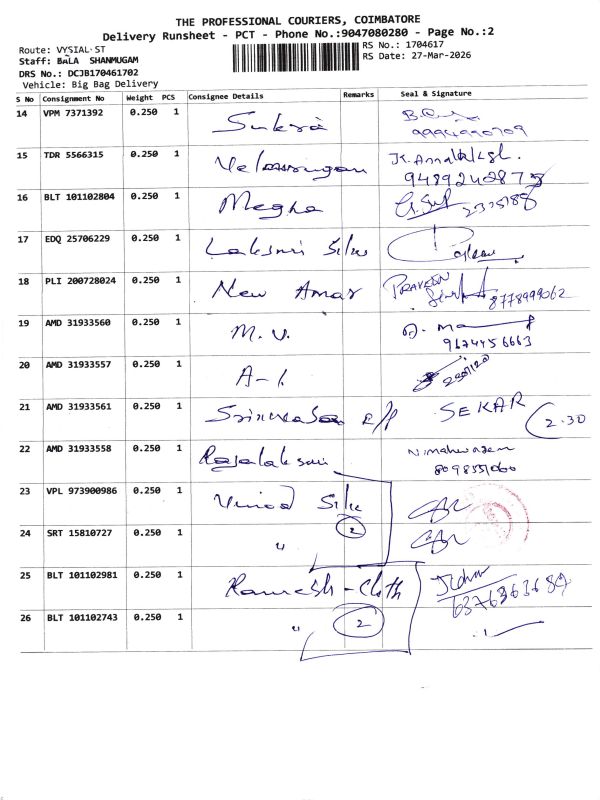 THE PROFESSIONAL COURIERS, COIMBATORE
Delivery Runsheet - PCT - Phone No.:9047080280 - Page No.:2
Route: VYSIAL ST
RS No.: 1704617
Staff: BALA SHANMUGAM
RS Date: 27-Mar-2026
DRS No.: DCJB170461702
Vehicle: Big Bag Delivery
S No Consignment No Weight PCS Consignee Details Remarks Seal & Signature
14 VPM 7371392 0.250 1 Suksra
15 TDR 5566315 0.250 1 Velmurugan
9489240878
16 BLT 101102804 0.250 1 Megha
17 EDQ 25706229 0.250 1 Laksmi Silks
18 PLI 200728024 0.250 1 New Amar PRAVEEN
8778999062
19 AMD 31933560 0.250 1 M. V.
9674456663
20 AMD 31933557 0.250 1 A-1.
21 AMD 31933561 0.250 1 Srinivasa E/P SEKAR 2.30
22 AMD 31933558 0.250 1 Rajalaksmi
23 VPL 973900986 0.250 1 Vinod Silk
2
24 SRT 15810727 0.250 1 "
25 BLT 101102981 0.250 1 Ramesh-Cloth
6376363689
26 BLT 101102743 0.250 1 " 2